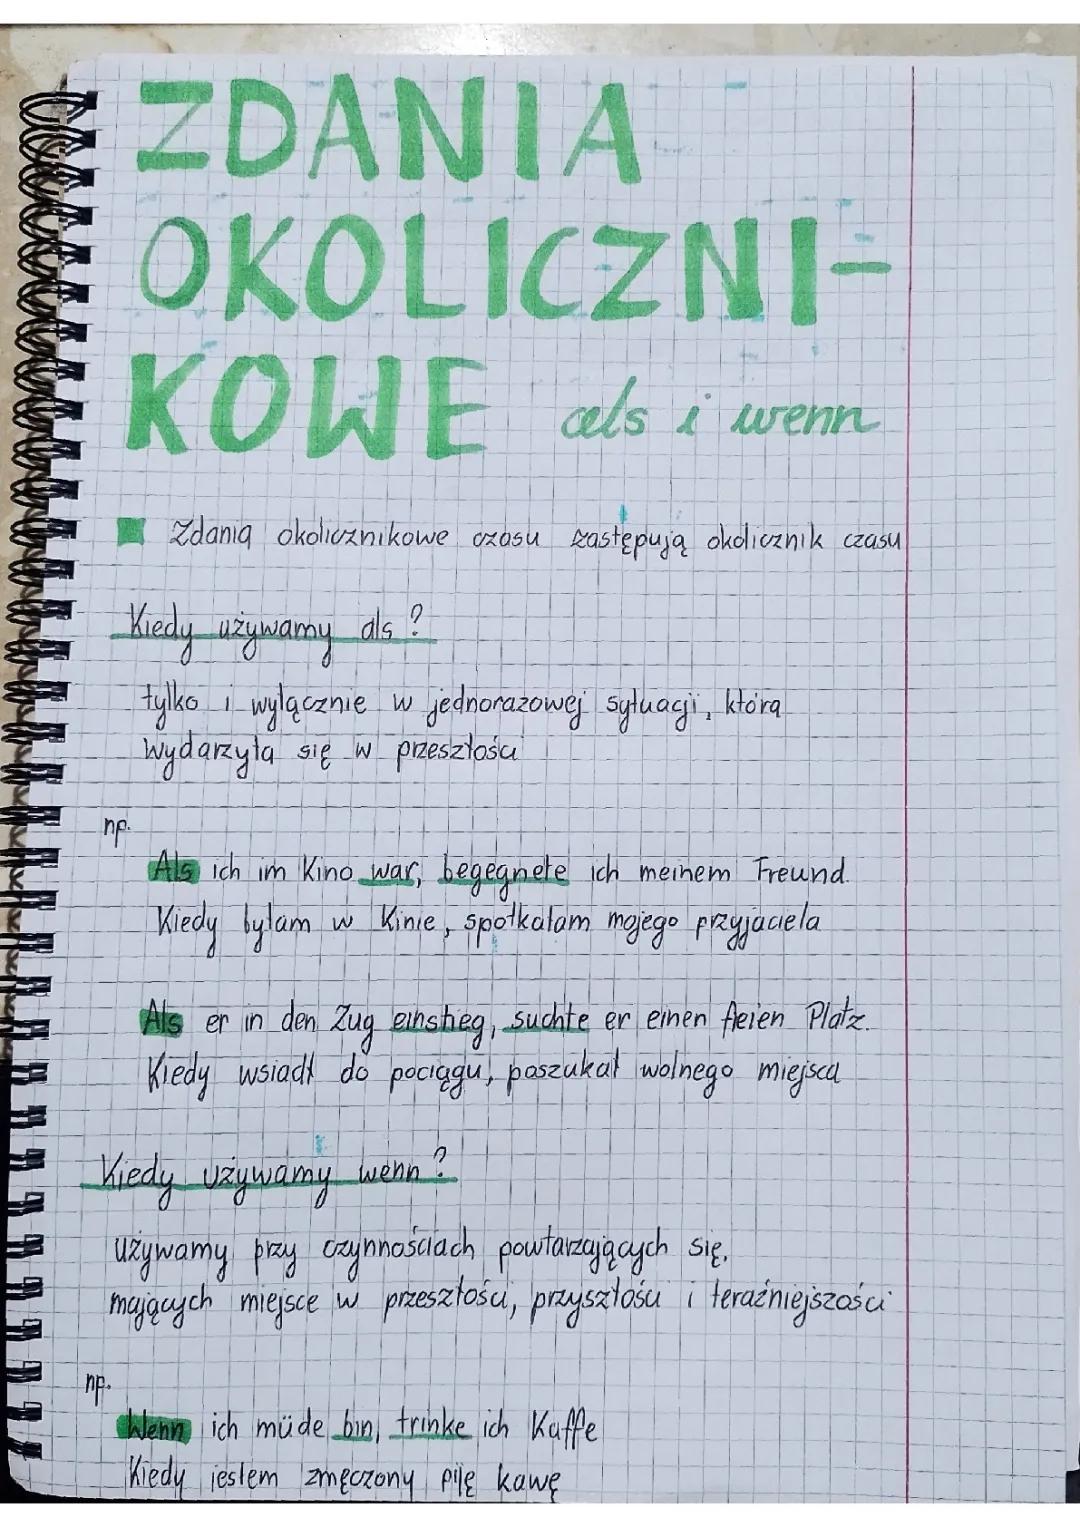 ZDANIA
OKOLICZNI-
KOWE als i wenn
Zdania okolicznikowe czasu zastępują okolicznik czasu
Kiedy używamy als?
tylko i wyłącznie w jednorazowej sytuacji, która
wydarzyła się w przeszłości
np.
Als ich im Kino war, begegnete ich meinem Freund.
Kiedy byłam w Kinie, spotkałam mojego przyjaciela
Als er in den Zug einstieg, suchte er einen freien Platz.
Kiedy wsiadł do pociągu, poszukał wolnego miejsca
Kiedy używamy wenn?
używamy przy czynnościach powtarzających się,
mających miejsce w przeszłości, przyszłości i teraźniejszości
np.
Wenn ich müde bin, trinke ich Kaffe
Kiedy jestem zmęczony piję kawę